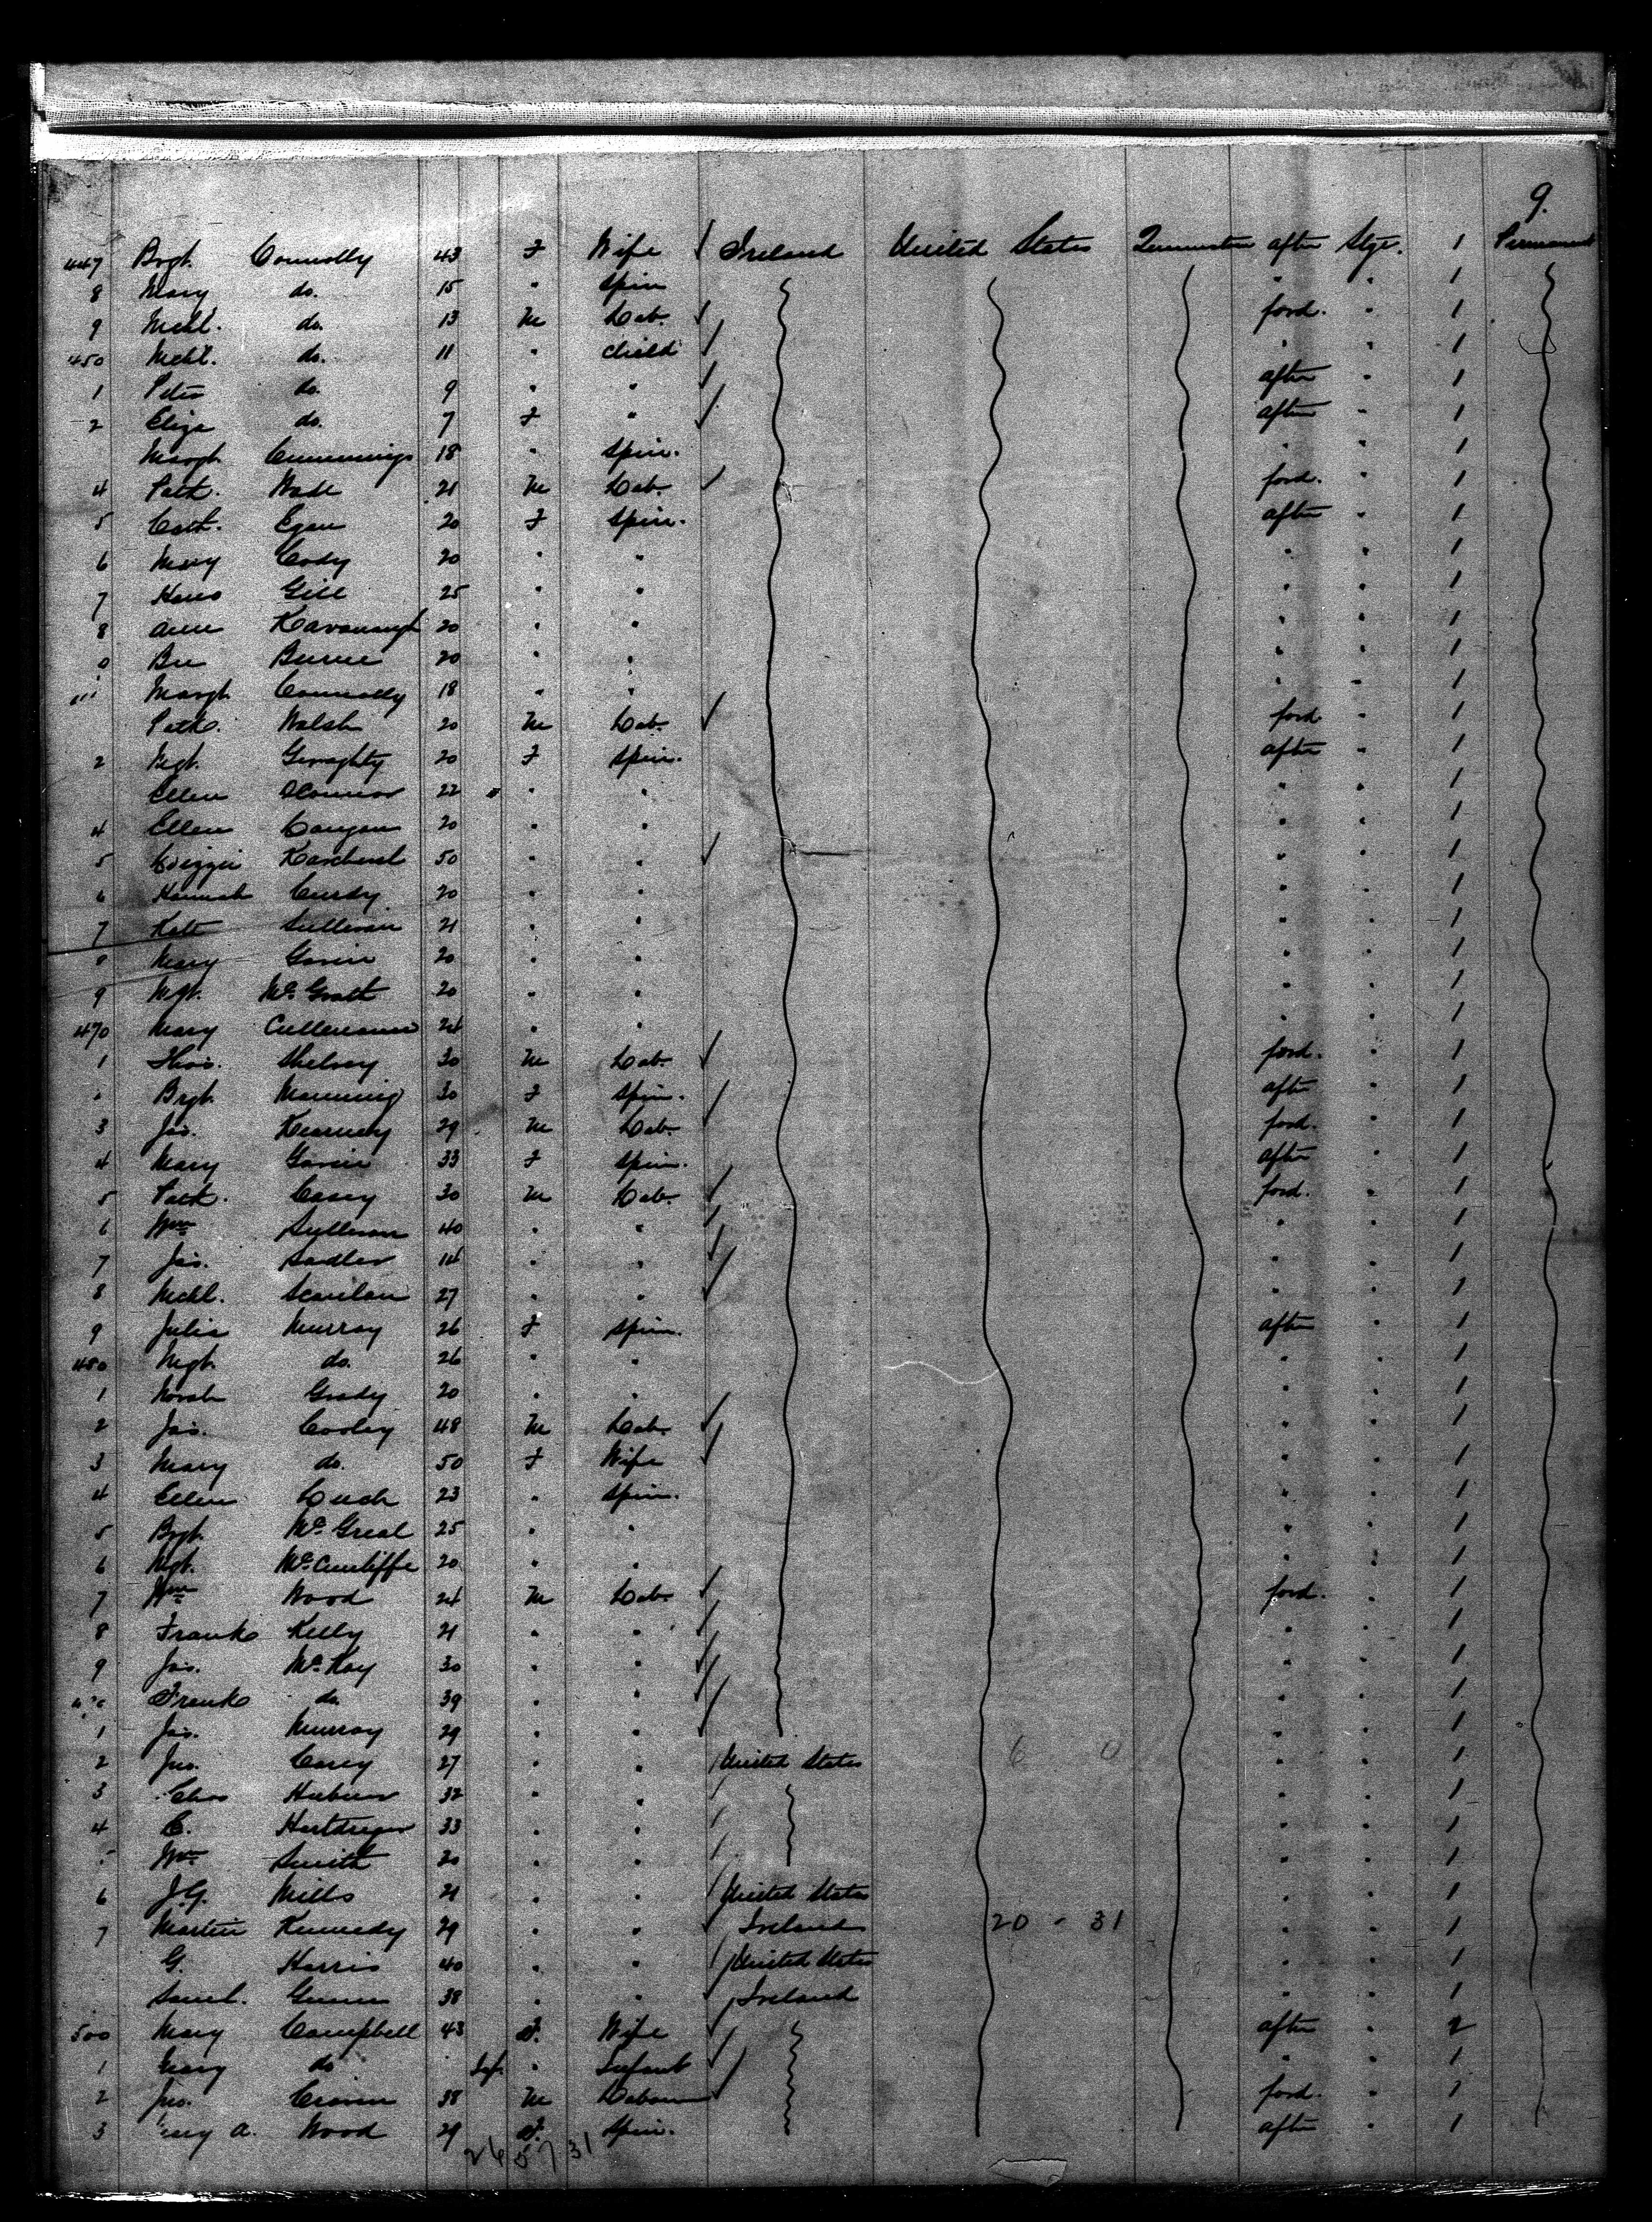 9.
447 Brgt. Connolly 43 F Wife / Ireland United States Queenstown after Stge. 1 Permanent
8 Mary do. 15 " Spin " " 1
9 Mchl. do. 13 M Lab. ford. " 1
450 Mchl. do. 11 " Child / " " 1
1 Peter do. 9 " " / after " 1
2 Eliza do. 7 F " / after " 1
Margt. Cummings 18 " Spin. " " 1
4 Patk. Wade 21 M Lab. ford. " 1
5 Cath. Egan 20 F Spin. after " 1
6 Mary Cody 20 " " " " 1
7 Gill 25 " " " " 1
8 Ann Kavanagh 20 " " " " 1
Burne 20 " " " " 1
Margt. Connolly 18 " " " " 1
Patk. Walsh 20 M Lab. ford " 1
2 Mgt. Geraghty 20 F Spin. after " 1
Ellen OConnor 22 " " " " 1
4 Ellen 20 " " " " 1
5 Lizzie 50 " " " " 1
6 Hannah Curdy 20 " " " " 1
7 Kate Sullivan 21 " " " " 1
8 Mary Gavin 20 " " " " 1
9 Mgt. McGratt 20 " " " " 1
470 Mary Cullenane 24 " " " " 1
1 Thos. 30 M Lab. ford. " 1
Brgt. Manning 30 F Spin. after " 1
3 Jas. Kearney 29 M Lab. ford. " 1
4 Mary Gavin 33 F Spin. after " 1
5 Patk. Casey 30 M Lab. ford. " 1
6 Wm Sullivan 40 " " " " 1
7 Jas. Sadler 14 " " " " 1
8 Mchl. Scanlan 27 " " " " 1
9 Julia Murray 26 F Spin. after " 1
480 Mgt. do. 26 " " " " 1
1 Norah Grady 20 " " " " 1
2 Jas. Cooley 48 M Lab. " " 1
3 Mary do. 50 F Wife " " 1
4 Ellen 23 " Spin. " " 1
5 Brgt. McGreal 25 " " " " 1
6 Mgt. McCunliffe 20 " " " " 1
7 Wm Wood 24 M Lab. ford. " 1
8 Frank Kelly 21 " " " " 1
9 Jas. McKay 30 " " " " 1
Frank do. 39 " " " " 1
1 Jas. Murray 29 " " " " 1
2 Jno. Carey 27 " " United States 6 0 " " 1
3 Chas 32 " " " " 1
4 C. 33 " " " " 1
Wm Smith 20 " " " " 1
6 J.G. Mills 21 " " United States " " 1
7 Martin Kennedy 29 " " Ireland 20 - 31 " " 1
G. Harris 40 " " United States " " 1
Saml. 38 " " Ireland " " 1
500 Mary Campbell 43 F. Wife after " 2
1 Mary do Inf. " Infant " " 1
2 Jno. Craven 38 M Labour ford. " 1
3 A. Wood 29 F. Spin. after " 1
26 5 7 31